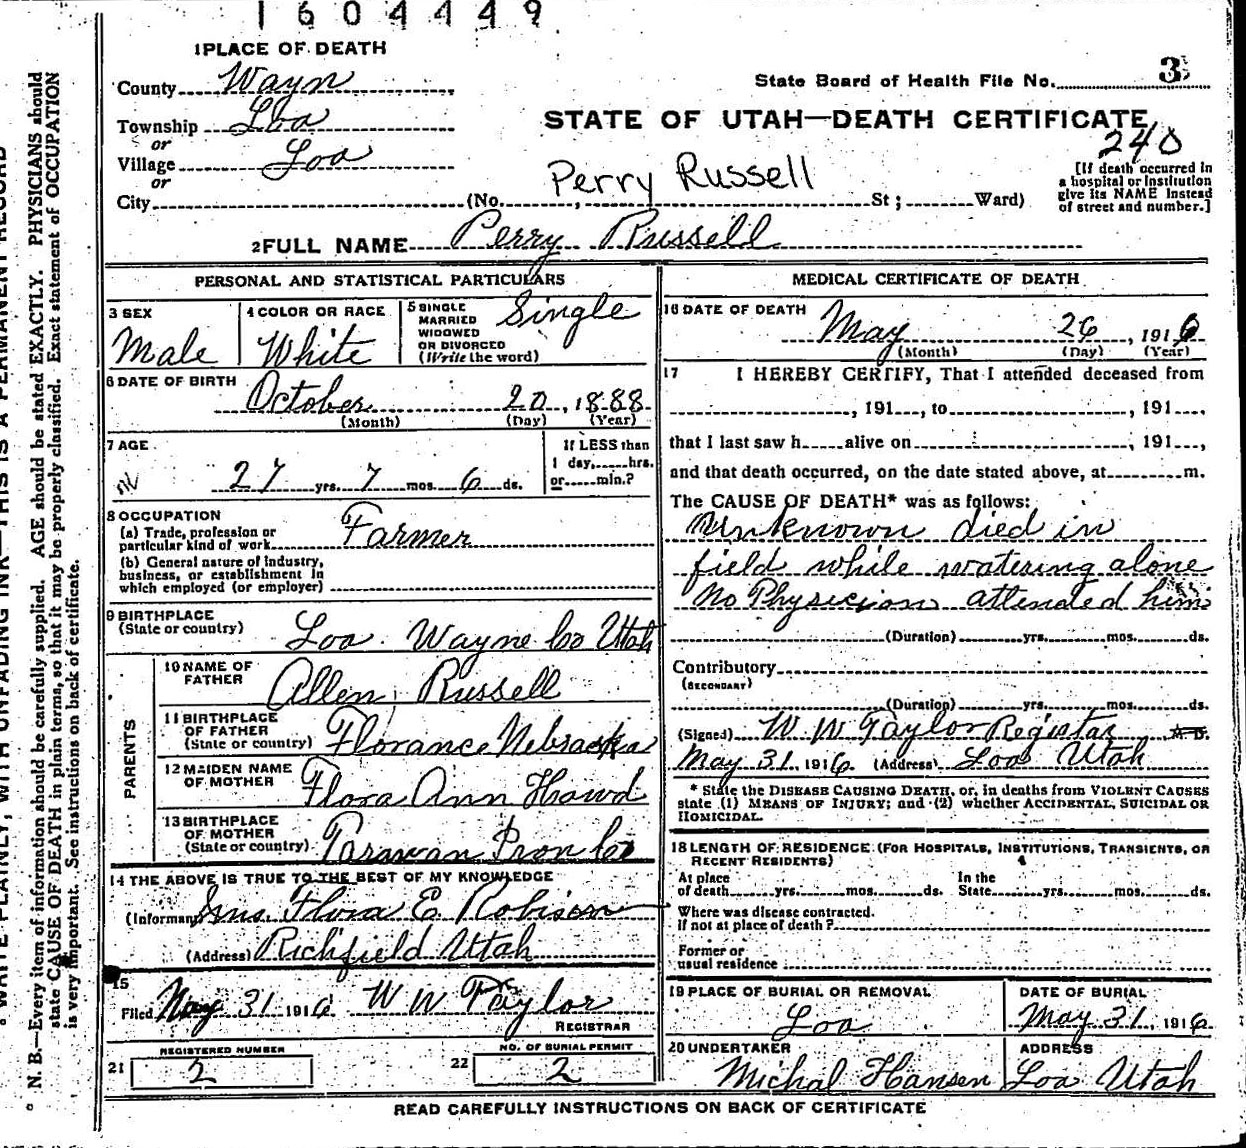 1604449
1 PLACE OF DEATH
County Wayn
State Board of Health File No. 3
Township Loa
or
STATE OF UTAH—DEATH CERTIFICATE
240
Village Loa
or
Perry Russell
[If death occurred in
a hospital or institution
give its NAME instead
of street and number.]
City (No. , St ; Ward)
2 FULL NAME Perry Russell
PERSONAL AND STATISTICAL PARTICULARS
3 SEX
Male
4 COLOR OR RACE
White
5 SINGLE
MARRIED
WIDOWED
OR DIVORCED
(Write the word)
Single
6 DATE OF BIRTH
October 20, 1888
(Month) (Day) (Year)
7 AGE
27 yrs. 7 mos. 6 ds.
If LESS than
1 day, hrs.
or min.?
8 OCCUPATION
(a) Trade, profession or
particular kind of work Farmer
(b) General nature of industry,
business, or establishment in
which employed (or employer)
9 BIRTHPLACE
(State or country) Loa Wayne Co Utah
PARENTS
10 NAME OF
FATHER
Allen Russell
11 BIRTHPLACE
OF FATHER
(State or country) Florance Nebraska
12 MAIDEN NAME
OF MOTHER
Flora Ann Howd
13 BIRTHPLACE
OF MOTHER
(State or country) Parawan Iron Co
14 THE ABOVE IS TRUE TO THE BEST OF MY KNOWLEDGE
(Informant) Mrs Flora E. Robison
(Address) Richfield Utah
15
Filed May 31 1916 W W Taylor
REGISTRAR
REGISTERED NUMBER
21 2
NO. OF BURIAL PERMIT
22 2
MEDICAL CERTIFICATE OF DEATH
16 DATE OF DEATH
May 26, 1916
(Month) (Day) (Year)
17 I HEREBY CERTIFY, That I attended deceased from
, 191 , to , 191 ,
that I last saw h alive on , 191 ,
and that death occurred, on the date stated above, at m.
The CAUSE OF DEATH* was as follows:
Unknown died in
field while watering alone
No Physician attended him
(Duration) yrs. mos. ds.
Contributory
(SECONDARY)
(Duration) yrs. mos. ds.
(Signed) W W Taylor Registar M.D.
May 31, 1916 (Address) Loa Utah
* State the DISEASE CAUSING DEATH, or, in deaths from VIOLENT CAUSES
state (1) MEANS OF INJURY; and (2) whether ACCIDENTAL, SUICIDAL OR
HOMICIDAL.
18 LENGTH OF RESIDENCE (FOR HOSPITALS, INSTITUTIONS, TRANSIENTS, OR
RECENT RESIDENTS)
At place
of death yrs. mos. ds.
In the
State yrs. mos. ds.
Where was disease contracted.
If not at place of death?
Former or
usual residence
19 PLACE OF BURIAL OR REMOVAL
Loa
DATE OF BURIAL
May 31, 1916
20 UNDERTAKER
Michal Hansen
ADDRESS
Loa Utah
READ CAREFULLY INSTRUCTIONS ON BACK OF CERTIFICATE
WRITE PLAINLY, WITH UNFADING INK—THIS IS A PERMANENT RECORD
N. B.—Every item of information should be carefully supplied. AGE should be stated EXACTLY. PHYSICIANS should
state CAUSE OF DEATH in plain terms, so that it may be properly classified. Exact statement of OCCUPATION
is very important. See instructions on back of certificate.